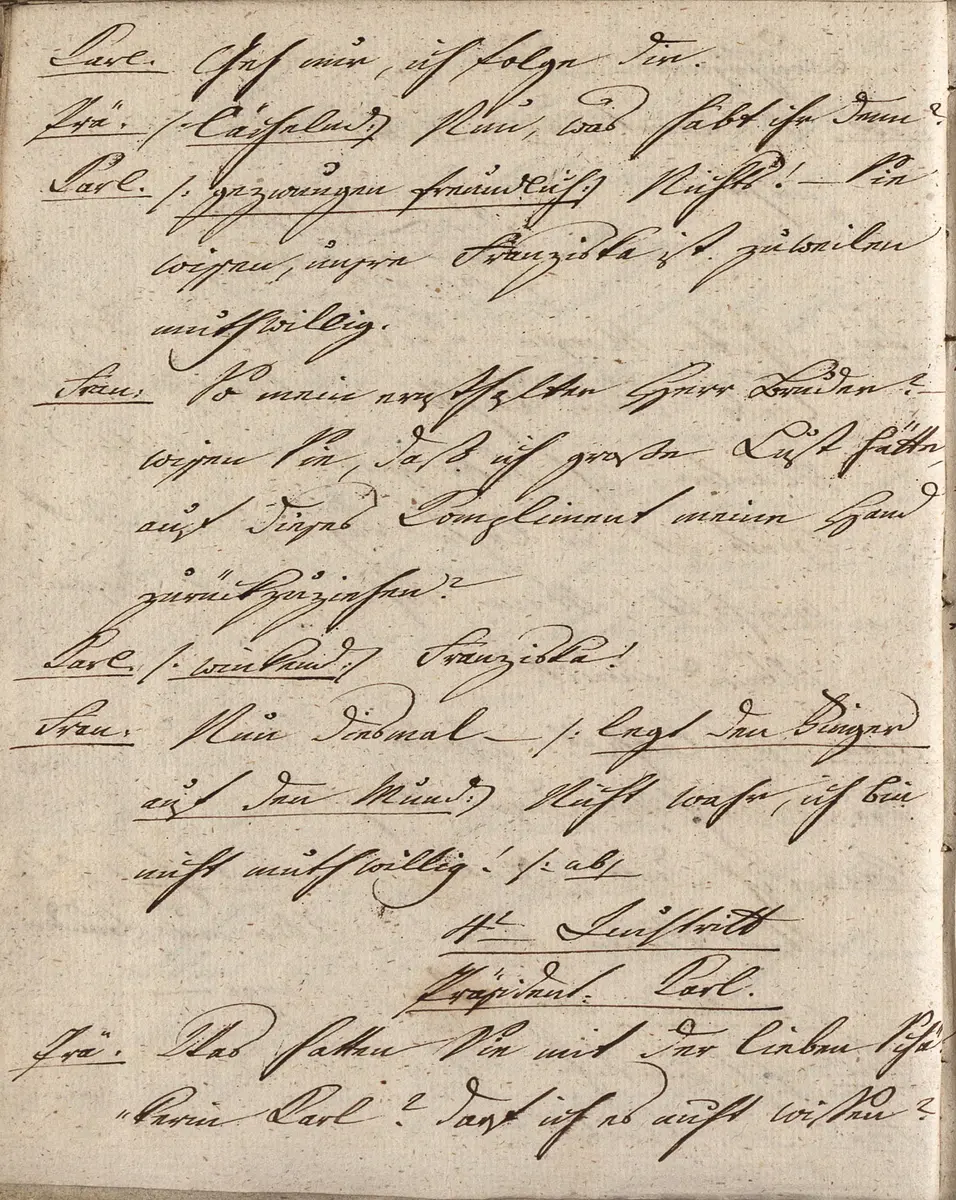 Karl. Geh nur, ich folge dir.
Prä. /: lächelnd :/ Nun, was habt ihr denn?
Karl. /: gezwungen freundlich :/ Nichts! – Sie
wissen, unsre Franziska ist zuweilen
muthwillig.
Fran: So mein ernsthafter Herr Bruder? –
wissen Sie, daß ich große Lust hätte,
auf dieses Kompliment meine Hand
zurückzuziehen?
Karl. /: winkend :/ Franziska!
Fran: Nun diesmal – /: legt den Finger
auf den Mund :/ Nicht wahr, ich bin
nicht muthwillig! /: ab /
4r Auftritt
Präsident. Karl.
Prä. Was hatten Sie mit der lieben Schä-
"kerin Karl? darf ich es nicht wissen?